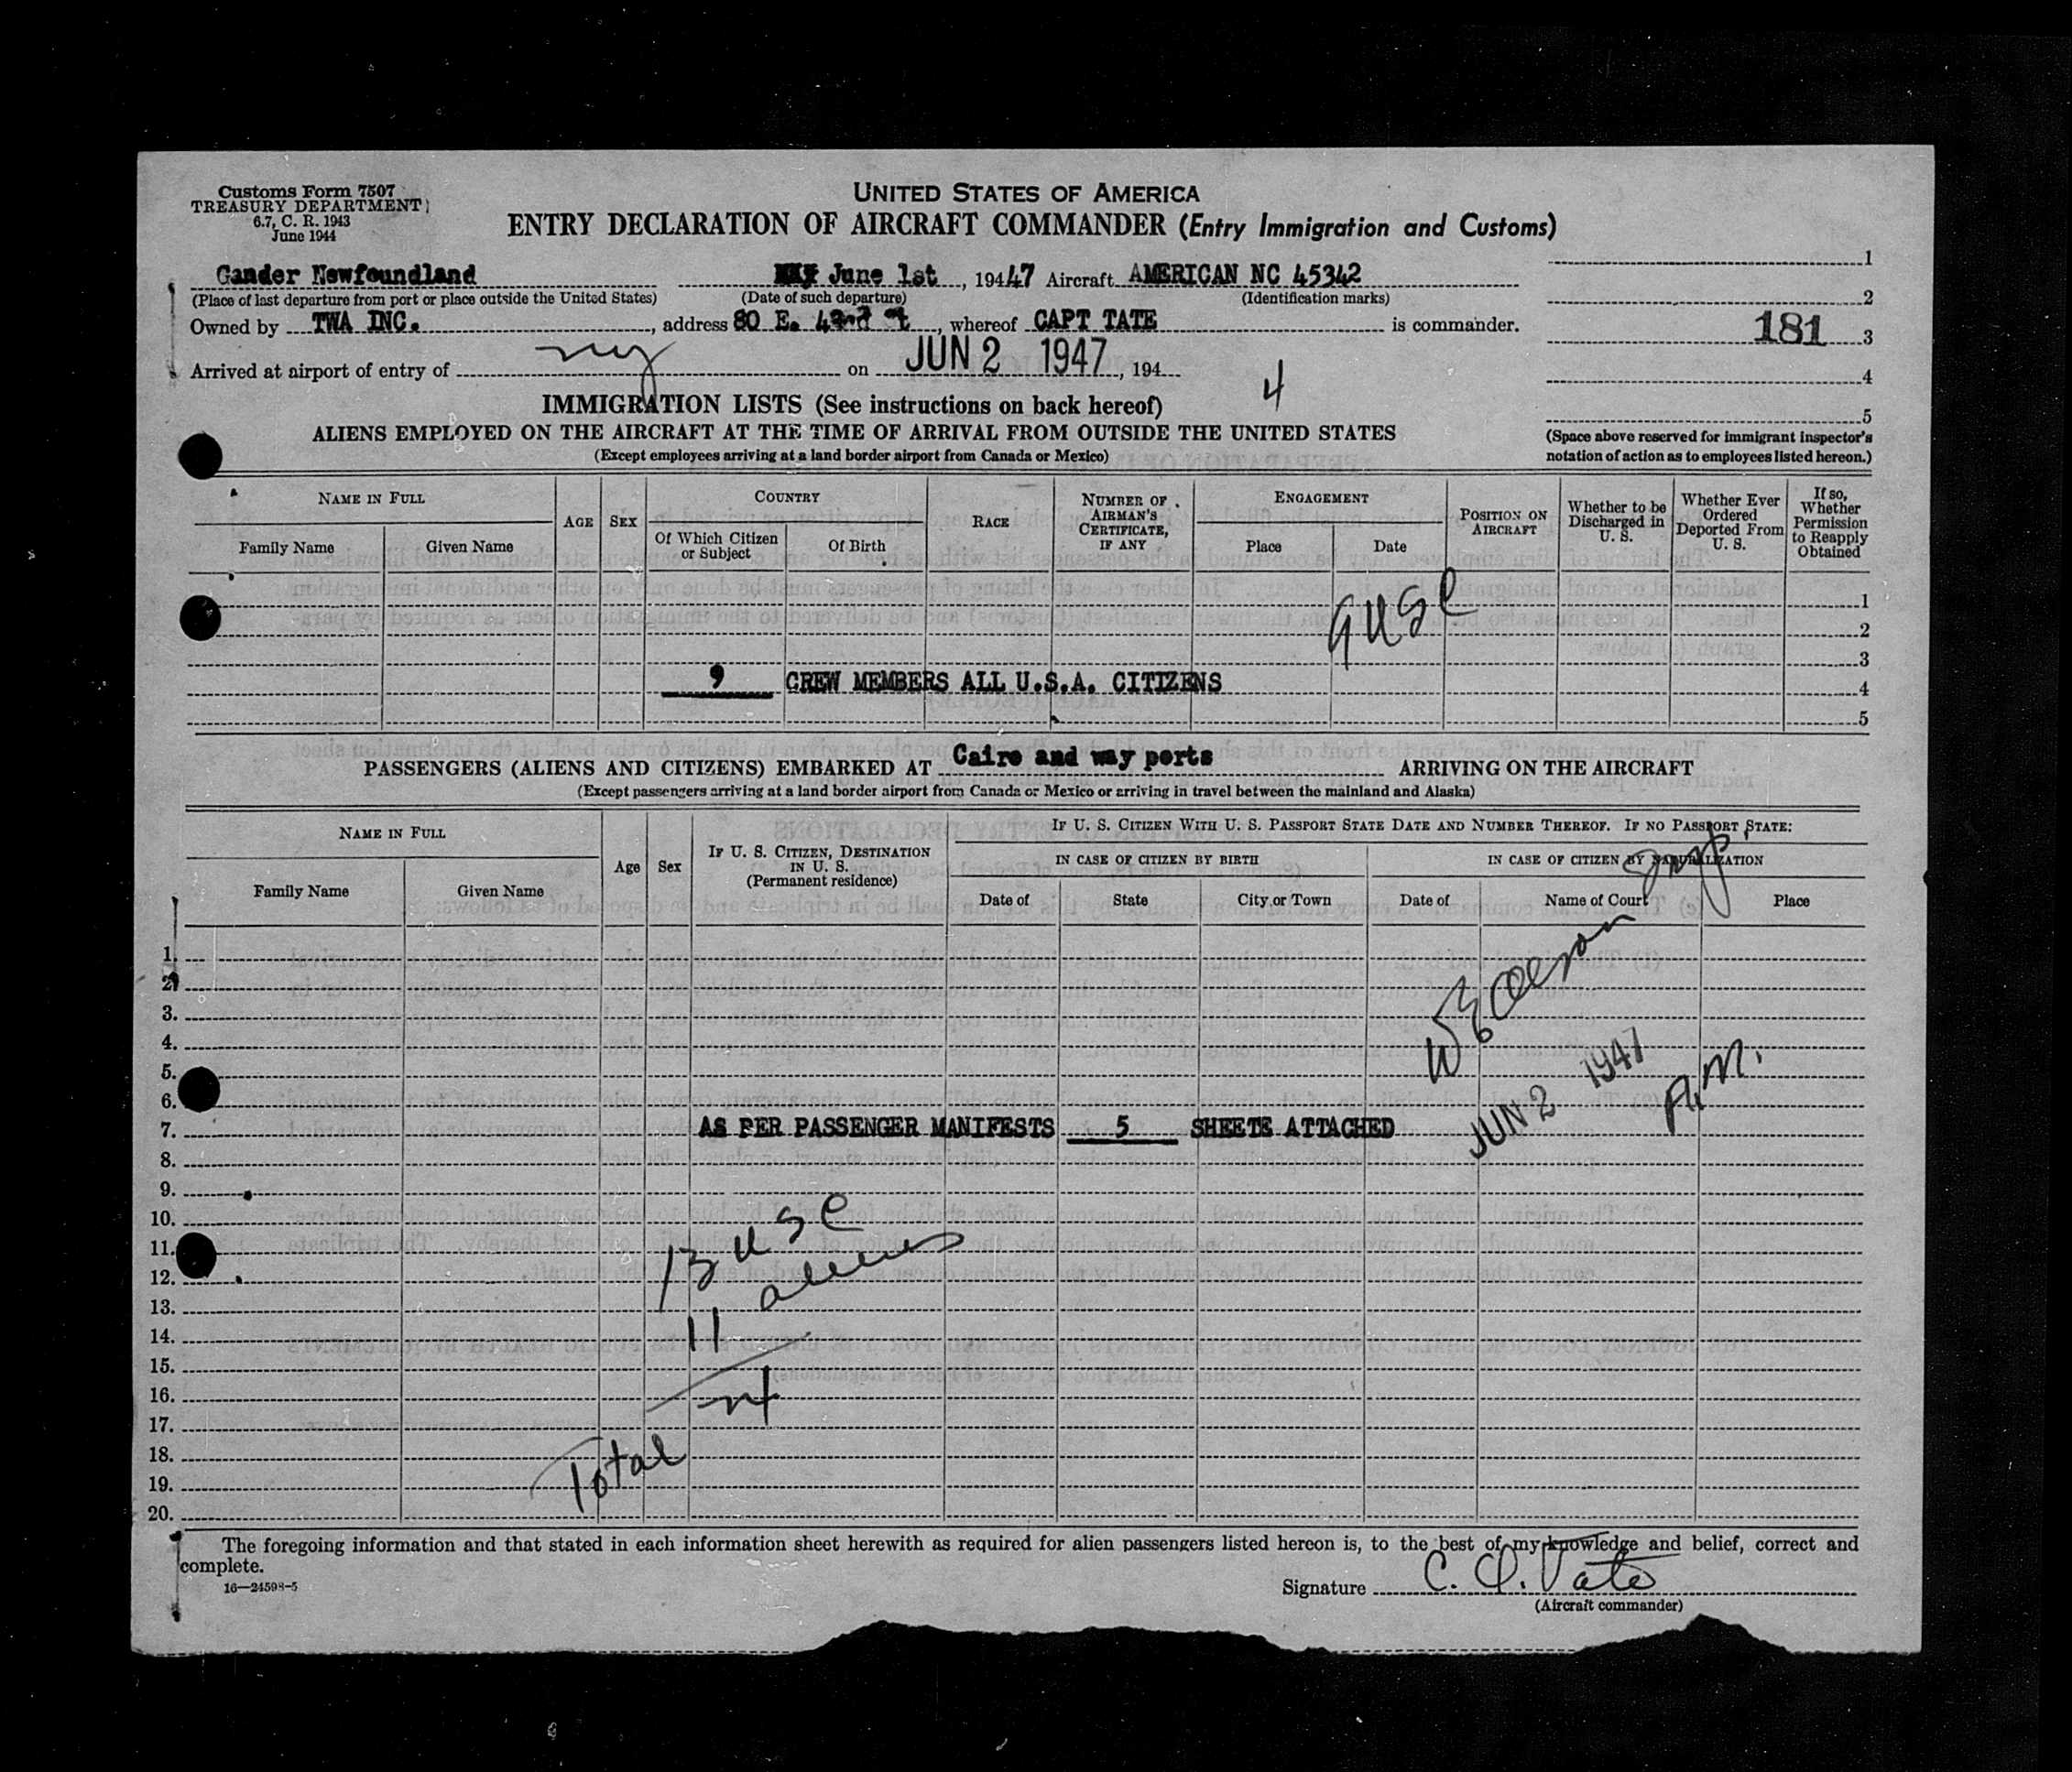 Customs Form 7507
TREASURY DEPARTMENT
6.7, C. R. 1943
June 1944
UNITED STATES OF AMERICA
ENTRY DECLARATION OF AIRCRAFT COMMANDER (Entry Immigration and Customs)
Gander Newfoundland June 1st, 19447 Aircraft AMERICAN NC 45342
(Place of last departure from port or place outside the United States) (Date of such departure) (Identification marks)
Owned by TWA INC., address 80 E. 42nd St, whereof CAPT TATE is commander.
Arrived at airport of entry of ny on JUN 2 1947, 194
1
2
181 3
4
5
(Space above reserved for immigrant inspector's notation of action as to employees listed hereon.)
4
IMMIGRATION LISTS (See instructions on back hereof)
ALIENS EMPLOYED ON THE AIRCRAFT AT THE TIME OF ARRIVAL FROM OUTSIDE THE UNITED STATES
(Except employees arriving at a land border airport from Canada or Mexico)
NAME IN FULL
Family Name Given Name
AGE SEX
COUNTRY
Of Which Citizen or Subject Of Birth
RACE
NUMBER OF AIRMAN'S CERTIFICATE, IF ANY
ENGAGEMENT
Place Date
POSITION ON AIRCRAFT
Whether to be Discharged in U. S.
Whether Ever Ordered Deported From U. S.
If so, Whether Permission to Reapply Obtained
1
2
3
4
5
9 usc
9 CREW MEMBERS ALL U.S.A. CITIZENS
PASSENGERS (ALIENS AND CITIZENS) EMBARKED AT Cairo and way ports ARRIVING ON THE AIRCRAFT
(Except passengers arriving at a land border airport from Canada or Mexico or arriving in travel between the mainland and Alaska)
NAME IN FULL
Family Name Given Name
Age Sex
IF U. S. CITIZEN, DESTINATION IN U. S.
(Permanent residence)
IF U. S. CITIZEN WITH U. S. PASSPORT STATE DATE AND NUMBER THEREOF. IF NO PASSPORT, STATE:
IN CASE OF CITIZEN BY BIRTH IN CASE OF CITIZEN BY NATURALIZATION
Date of State City or Town Date of Name of Court Place
1.
2.
3.
4.
5.
6.
7. AS PER PASSENGER MANIFESTS 5 SHEETS ATTACHED
8.
9.
10.
11.
12.
13.
14.
15.
16.
17.
18.
19.
20.
Insp.
JUN 2 1947
A.M.
13 usc
11 aliens
24
Total
The foregoing information and that stated in each information sheet herewith as required for alien passengers listed hereon is, to the best of my knowledge and belief, correct and
complete.
16—24598-5
Signature C. O. Tate
(Aircraft commander)